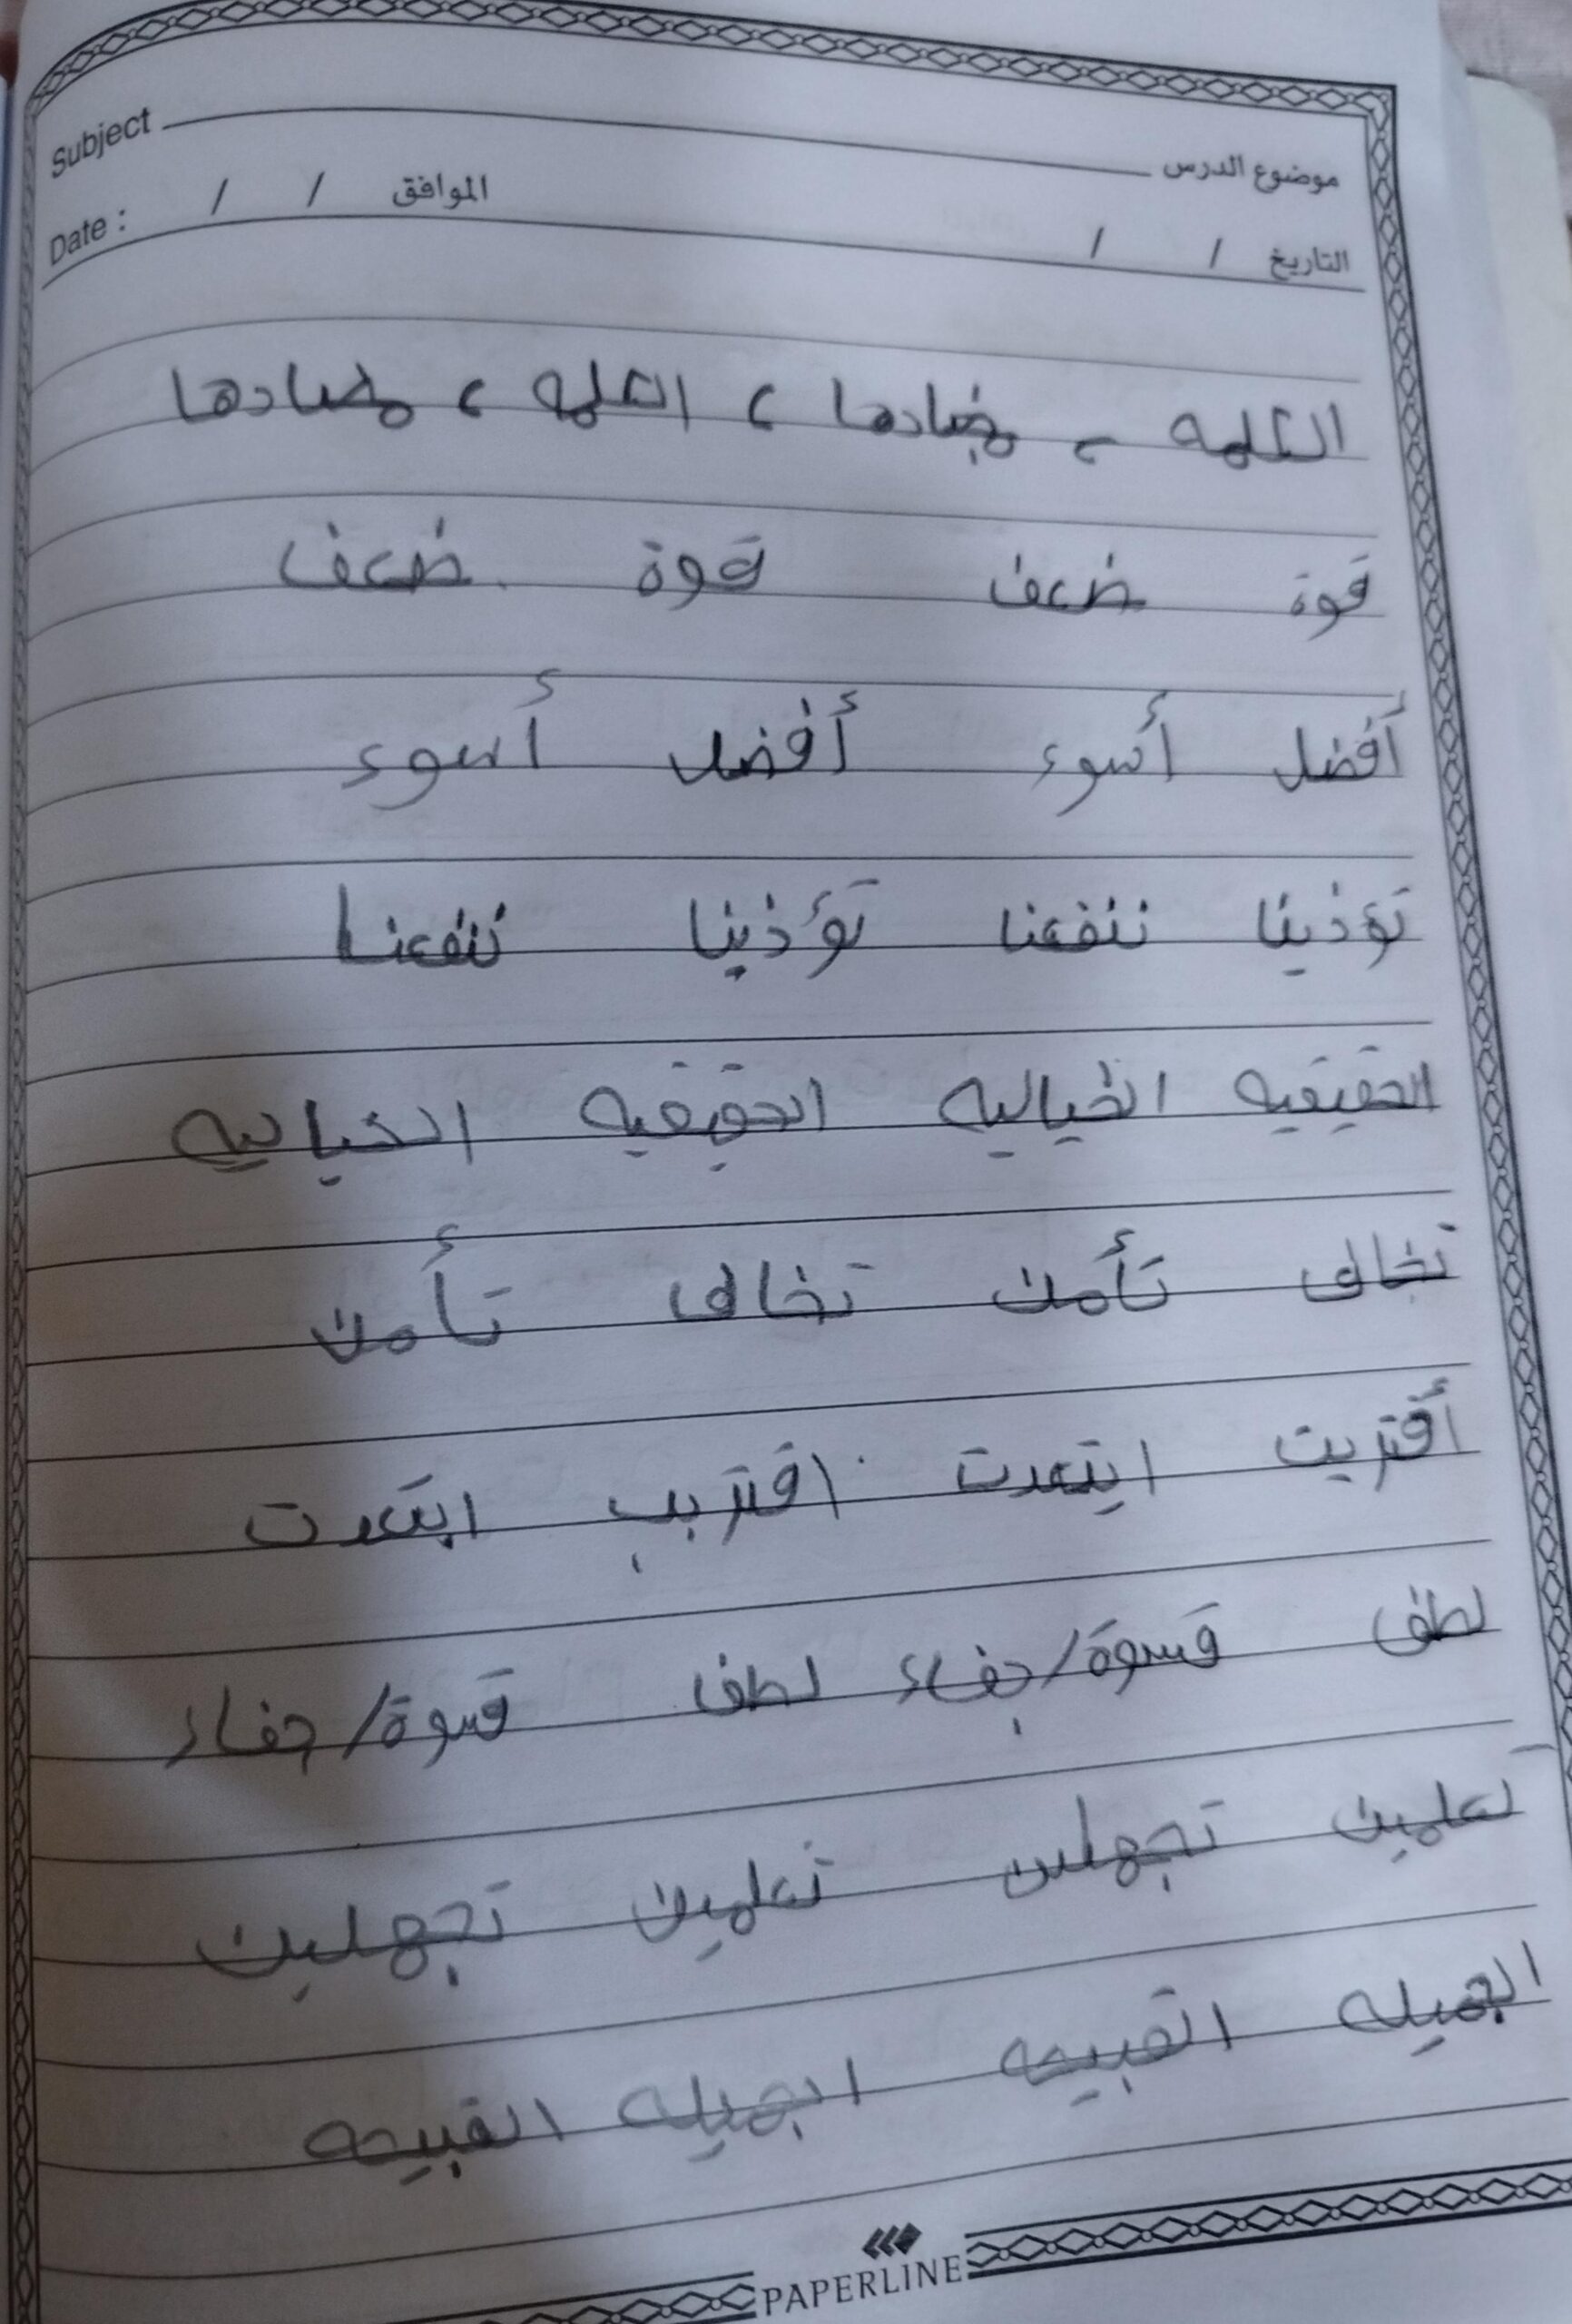 Subject موضوع الدرس
Date : / / الموافق / / التاريخ
الكلمه ، مضادها ، الكلمه ، مضادها
قوة ضعف قوة ضعف
أفضل أسوء أفضل أسوء
تؤذينا تنفعنا تؤذينا تنفعنا
الحقيقيه الخياليه الحقيقيه الخياليه
تخاف تأمن تخاف تأمن
أقتربت ابتعدت اقتربب ابتعدت
لطف قسوة/جفاء لطف قسوة/جفاء
تعلمين تجهلين تعلمين تجهلين
الجميله القبيحه الجميله القبيحه
PAPERLINE